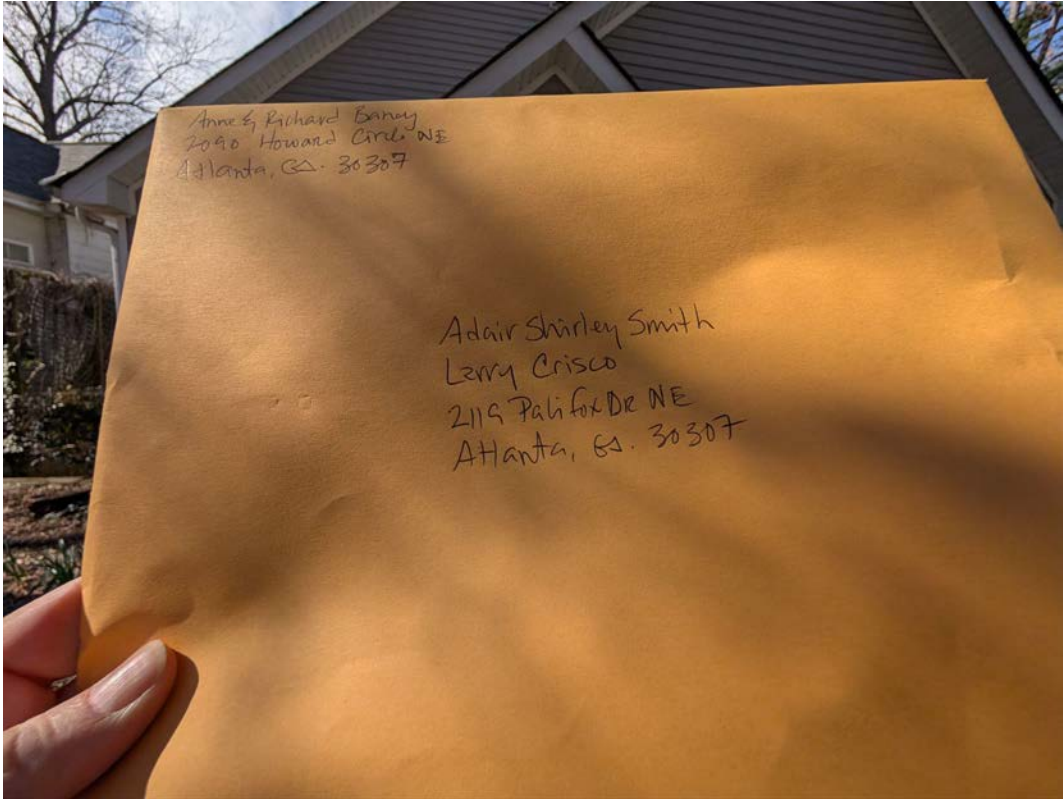 Anne & Richard Baney
2090 Howard Circle NE
Atlanta, GA. 30307
Adair Shirley Smith
Larry Crisco
2119 Palifox DR NE
Atlanta, GA. 30307